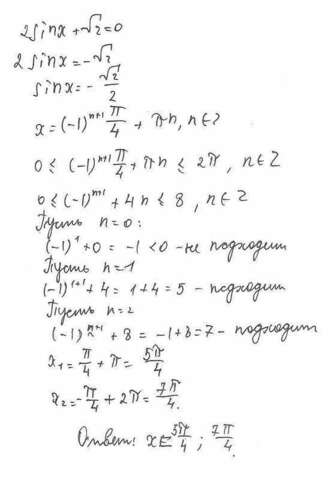 2sinx + √2 = 0
2 sinx = -√2
sinx = - √2/2
x = (-1)^(n+1) π/4 + πn, n∈Z
0 ≤ (-1)^(n+1) π/4 + πn ≤ 2π, n∈Z
0 ≤ (-1)^(n+1) + 4n ≤ 8, n∈Z
Пусть n=0:
(-1)^1 + 0 = -1 < 0 - не подходит
Пусть n=1
(-1)^(1+1) + 4 = 1+4 = 5 - подходит
Пусть n=2
(-1)^(2+1) + 8 = -1+8 = 7 - подходит
x₁ = π/4 + π = 5π/4
x₂ = -π/4 + 2π = 7π/4.
Ответ: x∈ 5π/4 ; 7π/4.